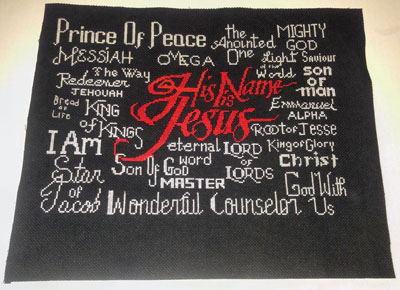 Prince Of Peace
the Anointed One
MIGHTY GOD
MESSIAH
OMEGA
Light of the World
Saviour
The Way
Redeemer
JEHOVAH
His Name is Jesus
son or man
Emmanuel
ALPHA
Bread of Life
KING of KINGS
Root of Jesse
I Am
eternal word
LORD of LORDS
King of Glory
Christ
Star of Jacob
Son Of God
MASTER
God With Us
Wonderful Counselor